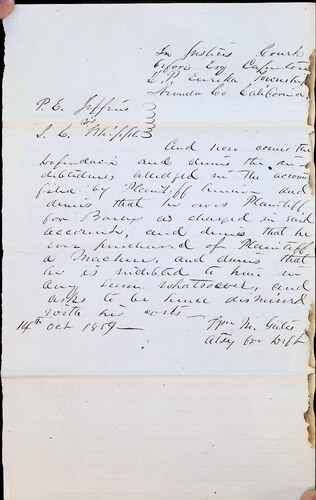 In Justices Court
before Esq Carpenter
J. P. Eureka Township
Nevada Co California,
P. E. Jeffris
vs
J. L. Whipple
And now comes the
Defendant and denies the in-
debtedness alledged in the account
filed by Plaintiff herein and
denies that he owes Plaintiff
for Barley as charged in said
account, and denies that he
ever purchased of Plaintiff
a Machine, and denies that
he is indebted to him in
any sum whatsoever, and
asks to be hence dismissed
with his costs —
14th Oct 1859 — M. Gates
Atty for Deft